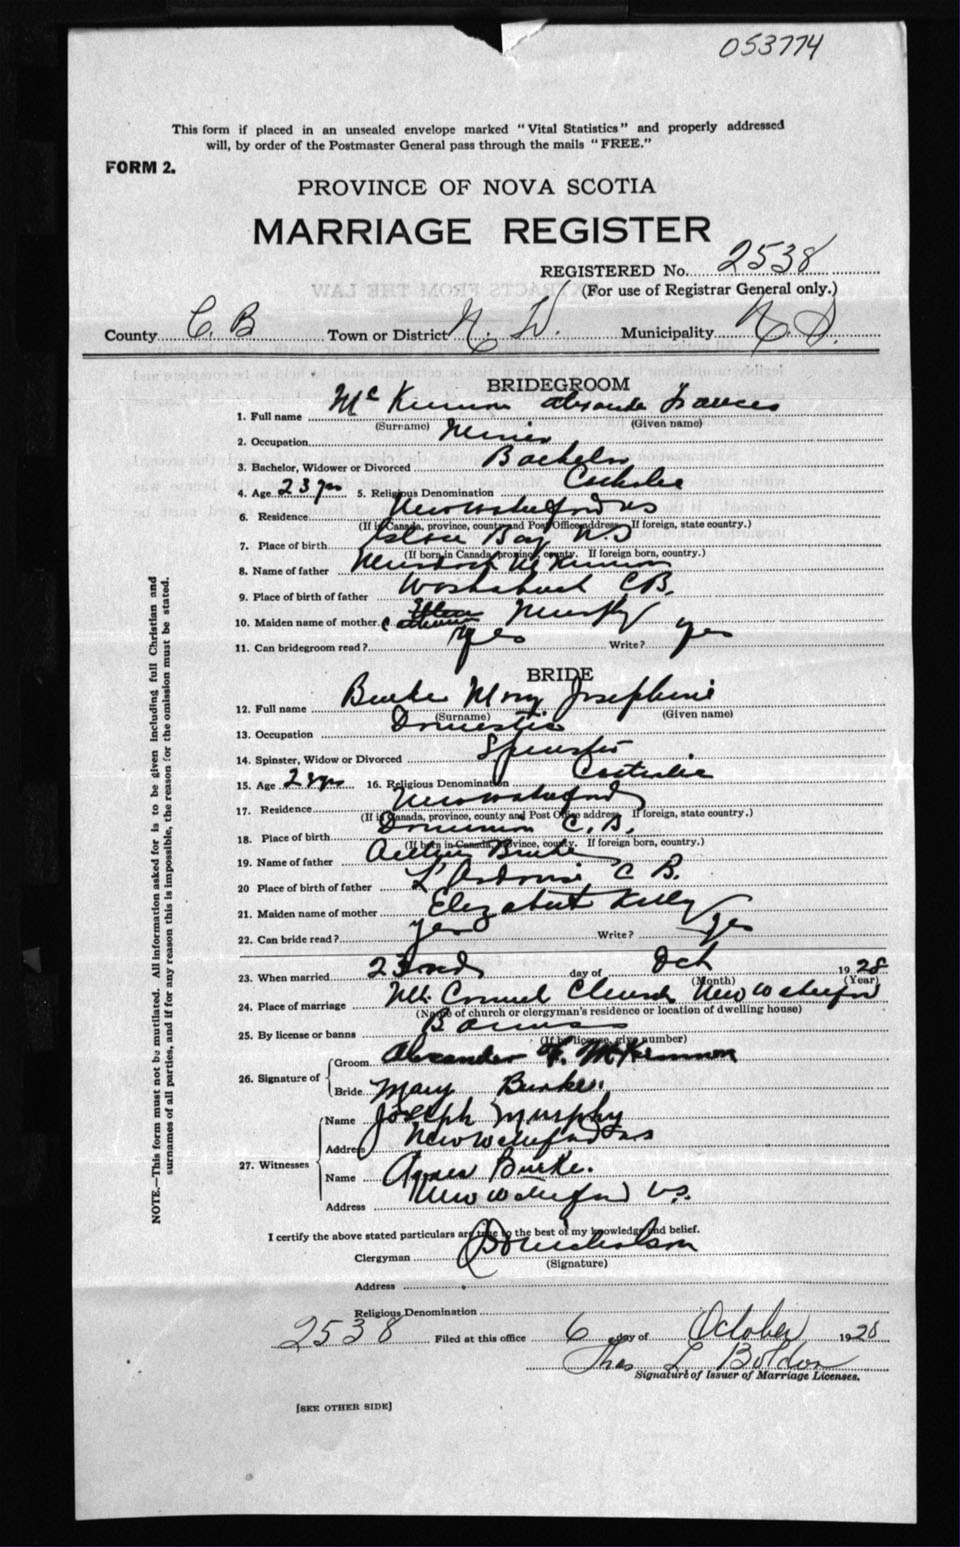 053774
This form if placed in an unsealed envelope marked "Vital Statistics" and properly addressed
will, by order of the Postmaster General pass through the mails "FREE."
FORM 2.
PROVINCE OF NOVA SCOTIA
MARRIAGE REGISTER
REGISTERED No. 2538
(For use of Registrar General only.)
County C. B Town or District N. W. Municipality N. S.
BRIDEGROOM
1. Full name McKinnon Alexander Frances
(Surname) (Given name)
2. Occupation
3. Bachelor, Widower or Divorced Bachelor
4. Age 23 yrs 5. Religious Denomination Catholic
6. Residence New Waterford NS
(If in Canada, province, county and Post Office address. If foreign, state country.)
7. Place of birth Glace Bay N.S
(If born in Canada, province, county. If foreign born, country.)
8. Name of father Murdoch McKinnon
9. Place of birth of father Washabuck C B.
10. Maiden name of mother Murphy
11. Can bridegroom read? yes Write? yes
BRIDE
12. Full name Burke Mary Josephine
(Surname) (Given name)
13. Occupation Domestic
14. Spinster, Widow or Divorced Spinster
15. Age yrs 16. Religious Denomination Catholic
17. Residence New Waterford
(If in Canada, province, county and Post Office address. If foreign, state country.)
18. Place of birth Dominion C. B.
(If born in Canada, province, county. If foreign born, country.)
19. Name of father Burke
20 Place of birth of father L'Ardoise C B.
21. Maiden name of mother Elizabeth Kelly
22. Can bride read? yes Write? yes
23. When married day of Oct 1928
(Month) (Year)
24. Place of marriage Mt. Carmel Church New Waterford
(Name of church or clergyman's residence or location of dwelling house)
25. By license or banns Banns
(If by license, give number)
26. Signature of Groom Alexander F. McKinnon
Bride Mary Burke.
27. Witnesses Name Joseph Murphy
Address New Waterford NS
Name Agnes Burke.
Address New Waterford N.S.
I certify the above stated particulars are true to the best of my knowledge and belief.
Clergyman Nicholson
(Signature)
Address
Religious Denomination
2538 Filed at this office 6 day of October 1928
Thos L Boldon
Signature of Issuer of Marriage Licenses.
[SEE OTHER SIDE]
NOTE.—This form must not be mutilated. All information asked for is to be given including full Christian and
surnames of all parties, and if for any reason this is impossible, the reason for the omission must be stated.